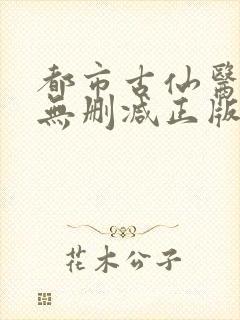 都市古仙醫
無刪減正版
花木公子